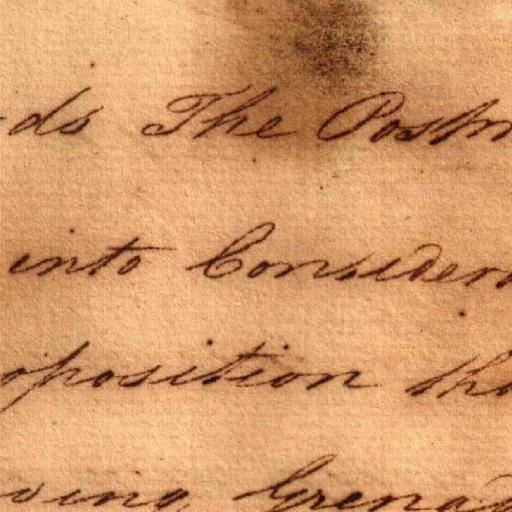 ds The Postm
into Consider
oposition tha
ving Grenad